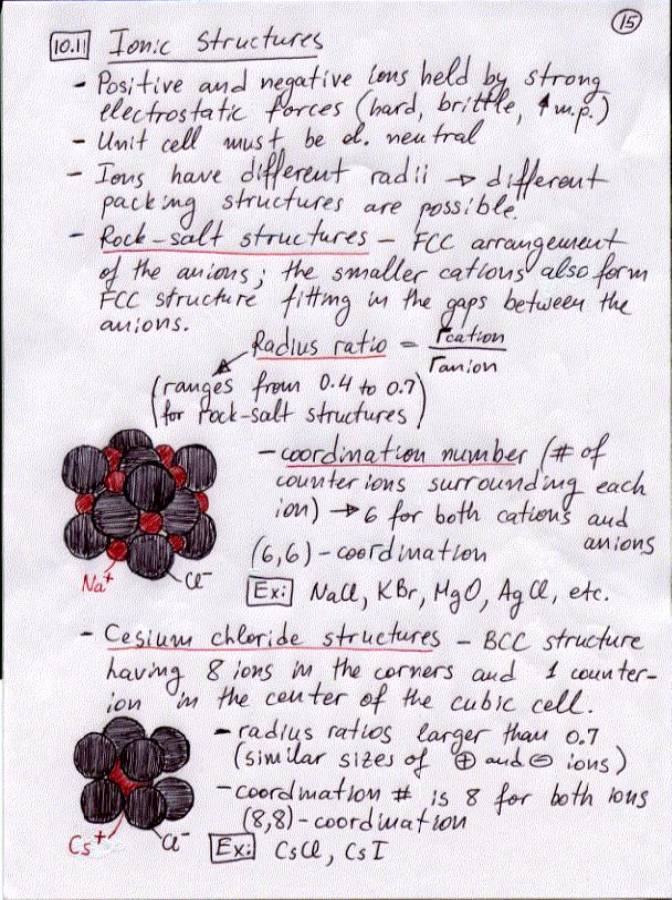 15
10.11 Ionic Structures
- Positive and negative ions held by strong
electrostatic forces (hard, brittle, ↑ m.p.)
- Unit cell must be el. neutral
- Ions have different radii → different
packing structures are possible.
- Rock-salt structures - FCC arrangement
of the anions; the smaller cations also form
FCC structure fitting in the gaps between the
anions.
Radius ratio = rcation / ranion
(ranges from 0.4 to 0.7
for rock-salt structures)
- coordination number (# of
counter ions surrounding each
ion) → 6 for both cations and
anions
(6,6) - coordination
Na+ Cl-
Ex: NaCl, KBr, MgO, AgCl, etc.
- Cesium chloride structures - BCC structure
having 8 ions in the corners and 1 counter-
ion in the center of the cubic cell.
- radius ratios larger than 0.7
(similar sizes of ⊕ and ⊖ ions)
- coordination # is 8 for both ions
(8,8) - coordination
Cs+ Cl-
Ex: CsCl, CsI